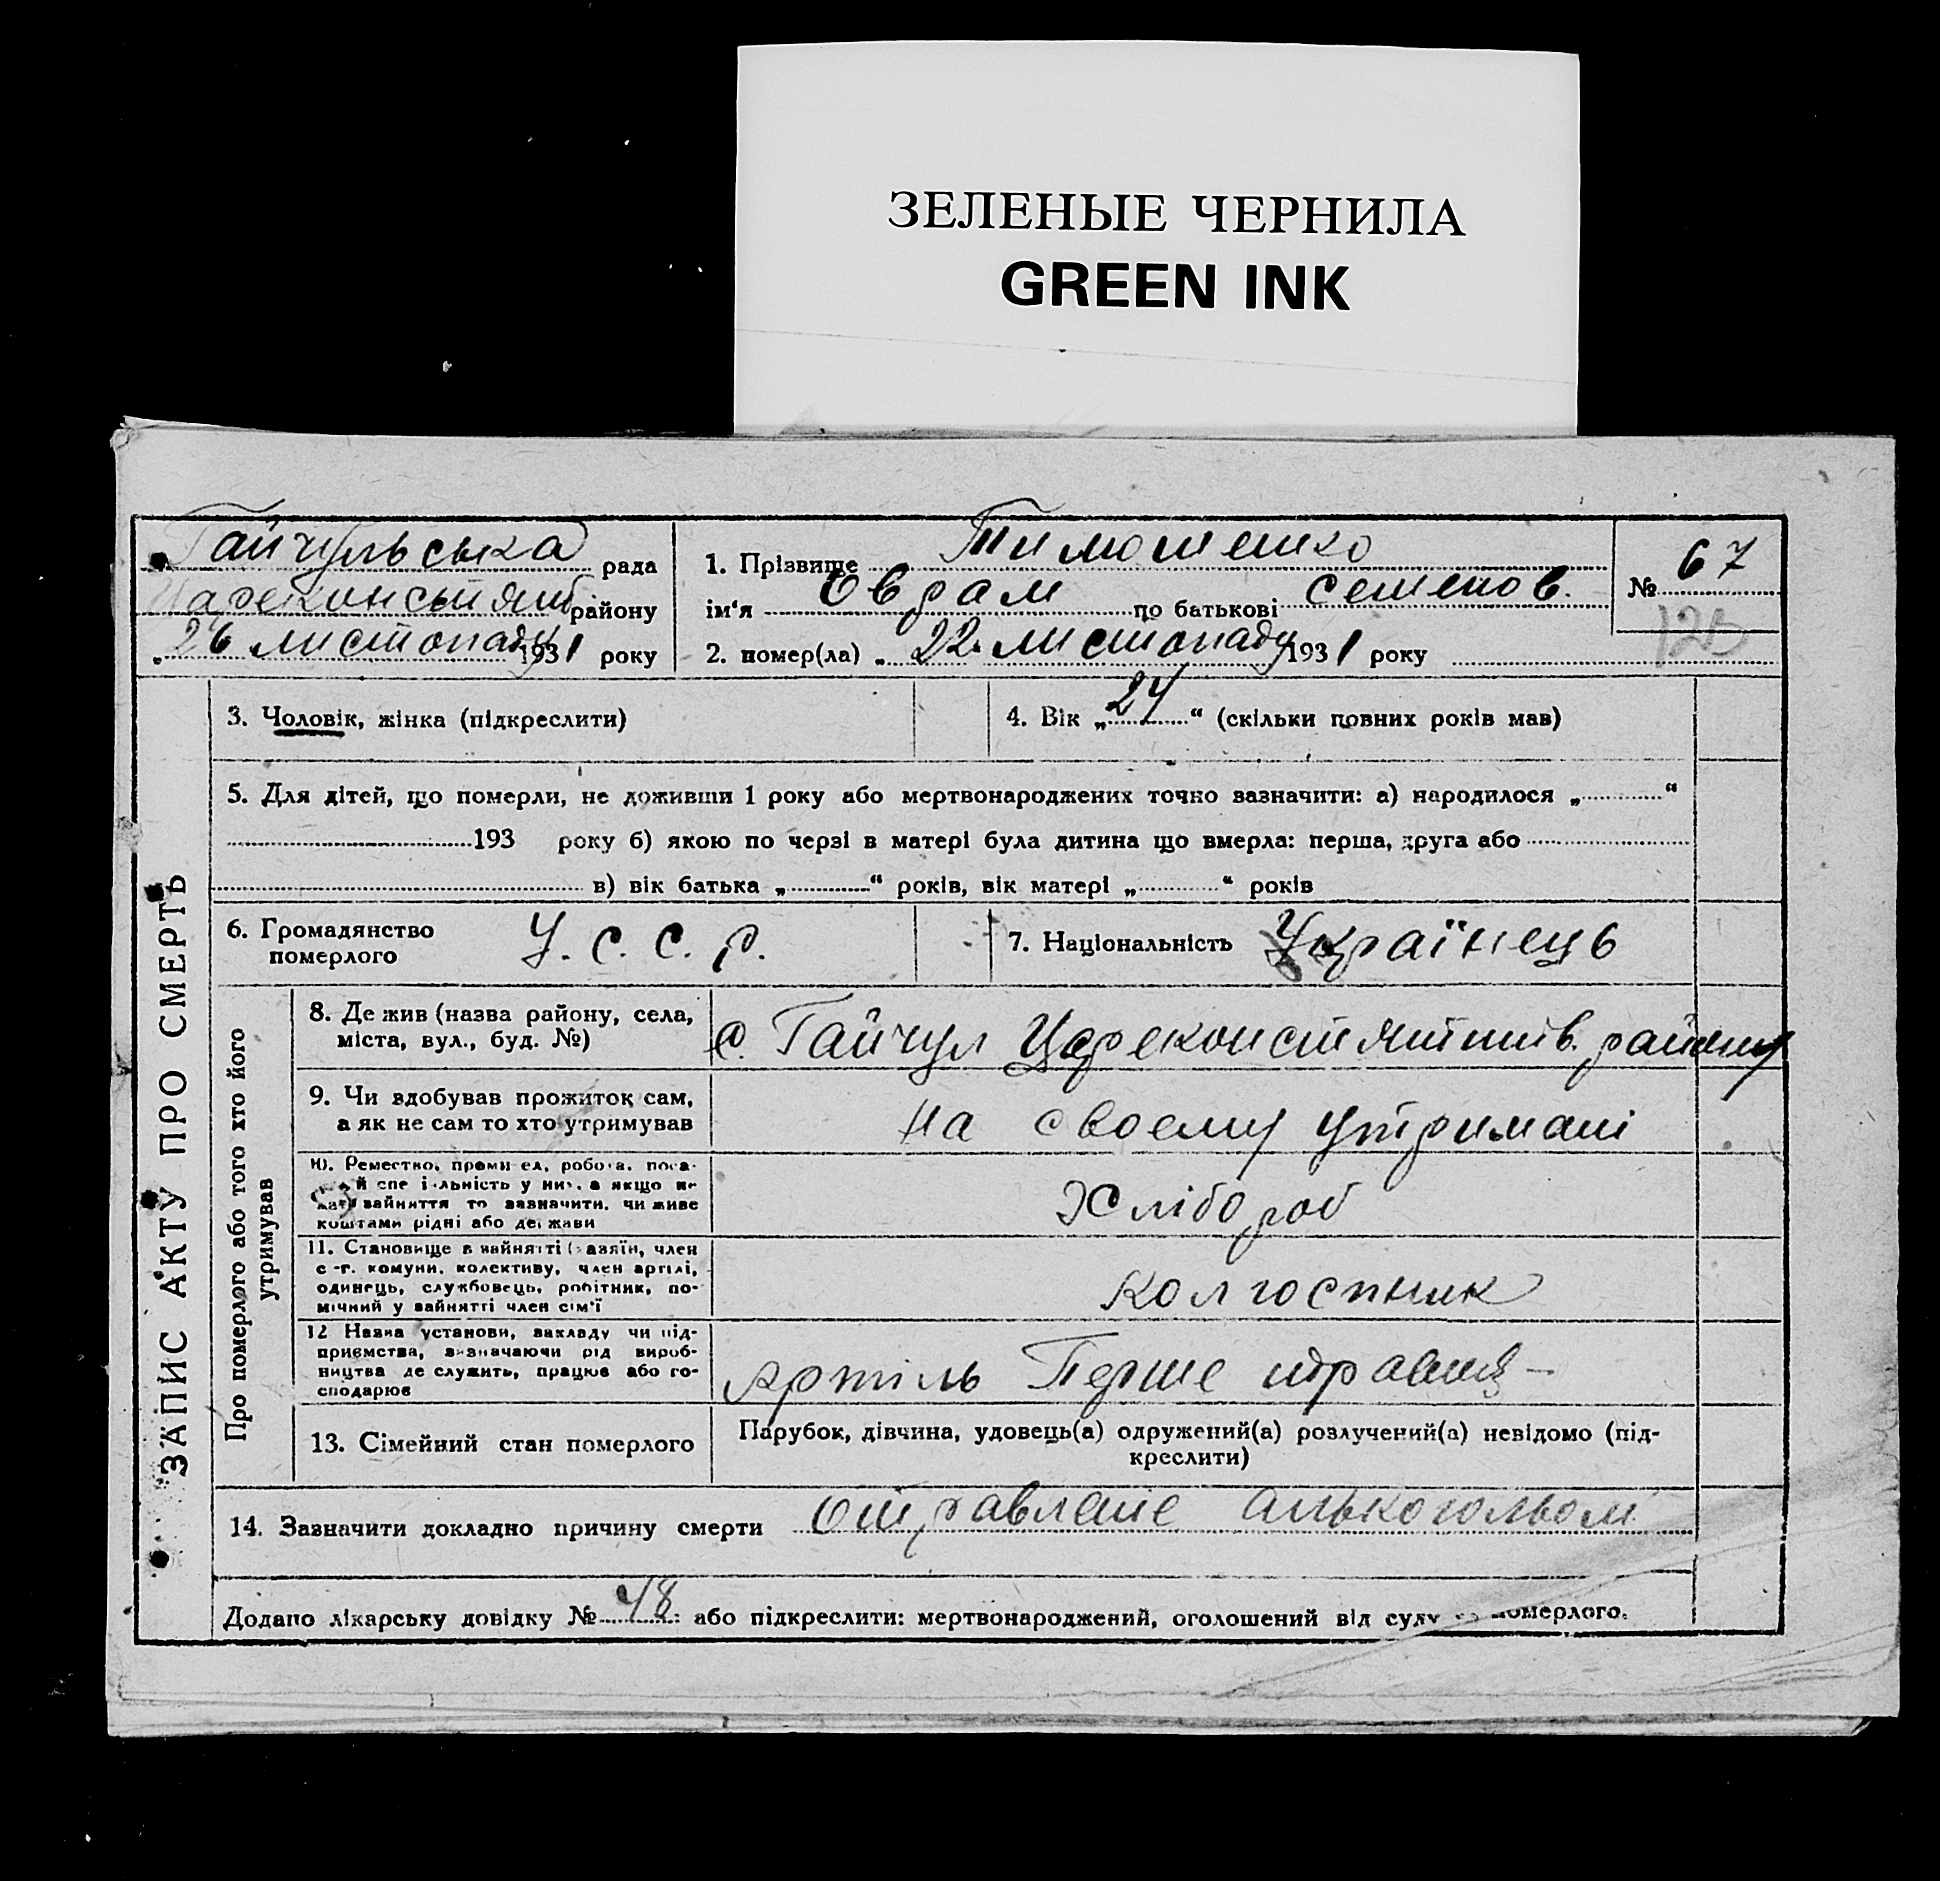 ЗЕЛЕНЫЕ ЧЕРНИЛА
GREEN INK
Гайчульська рада
Цареконстянт району
„26 листопаду 1931 року
1. Прізвище Тимошенко
ім‘я Оврам по батькові Семенов.
2. помер(ла) „22. листопаду 1931 року
№ 67
123
ЗАПИС АКТУ ПРО СМЕРТЬ
3. Чоловік, жінка (підкреслити)
4. Вік „24“ (скільки повних років мав)
5. Для дітей, що померли, не доживши 1 року або мертвонароджених точно вазначити: а) народилося „ “
193 року б) якою по черзі в матері була дитина що вмерла: перша, друга або
в) вік батька „ “ років, вік матері „ “ років
6. Громадянство
померлого
У. С. С. Р.
7. Національність Українець
Про померлого або того хто його
утримував
8. Де жив (назва району, села,
міста, вул., буд. №)
с. Гайчул Цареконстянтинів. району
9. Чи вдобував прожиток сам,
а як не сам то хто утримував
На своему утримані
10. Ремество, промисел, робота, поса-
й спеціяльність у них, а якщо не
має вайняття то вазначити, чи живе
коштами рідні або держави
Хлібороб
11. Становище в вайнятті (хазяїн, член
с.-г. комуни, колективу, член артілі,
одинець, службовець, робітник, по-
мічний у вайнятті член сім'ї
Колгоспник
12 Назва установи, вакладу чи під-
приємства, визначаючи рід вироб-
ництва де служить, працює або го-
сподарює
артіль Перше травня
13. Сімейний стан померлого
Парубок, дівчина, удовець(а) одружений(а) розлучений(а) невідомо (під-
креслити)
14. Зазначити докладно причину смерти отравленіе алькогольом
Додано лікарську довідку № 48 або підкреслити: мертвонароджений, оголошений від суду за померлого.